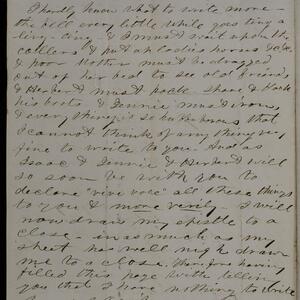 I hardly know what to write more -
the bell every little while goes ting a
ling-ting, & I must wait upon the
callers & put up ladies horses &c &c
& poor Mother must be dragged
out of her bed to see old friends
& Herbert must pack, shave & black
his boots, & Jennie must iron,
& everything is so
I cannot think of any thing very
fine to write to you. And as
Isaac & Jennie & Herbert will
so soon be with you to
declare "vivi voce" all these things
to you & more verily - I will
now draw my epistle to a
close - in as much as my
sheet has well nigh drawn
me to a close. Therefore having
filled this page with telling
you that I have nothing to write